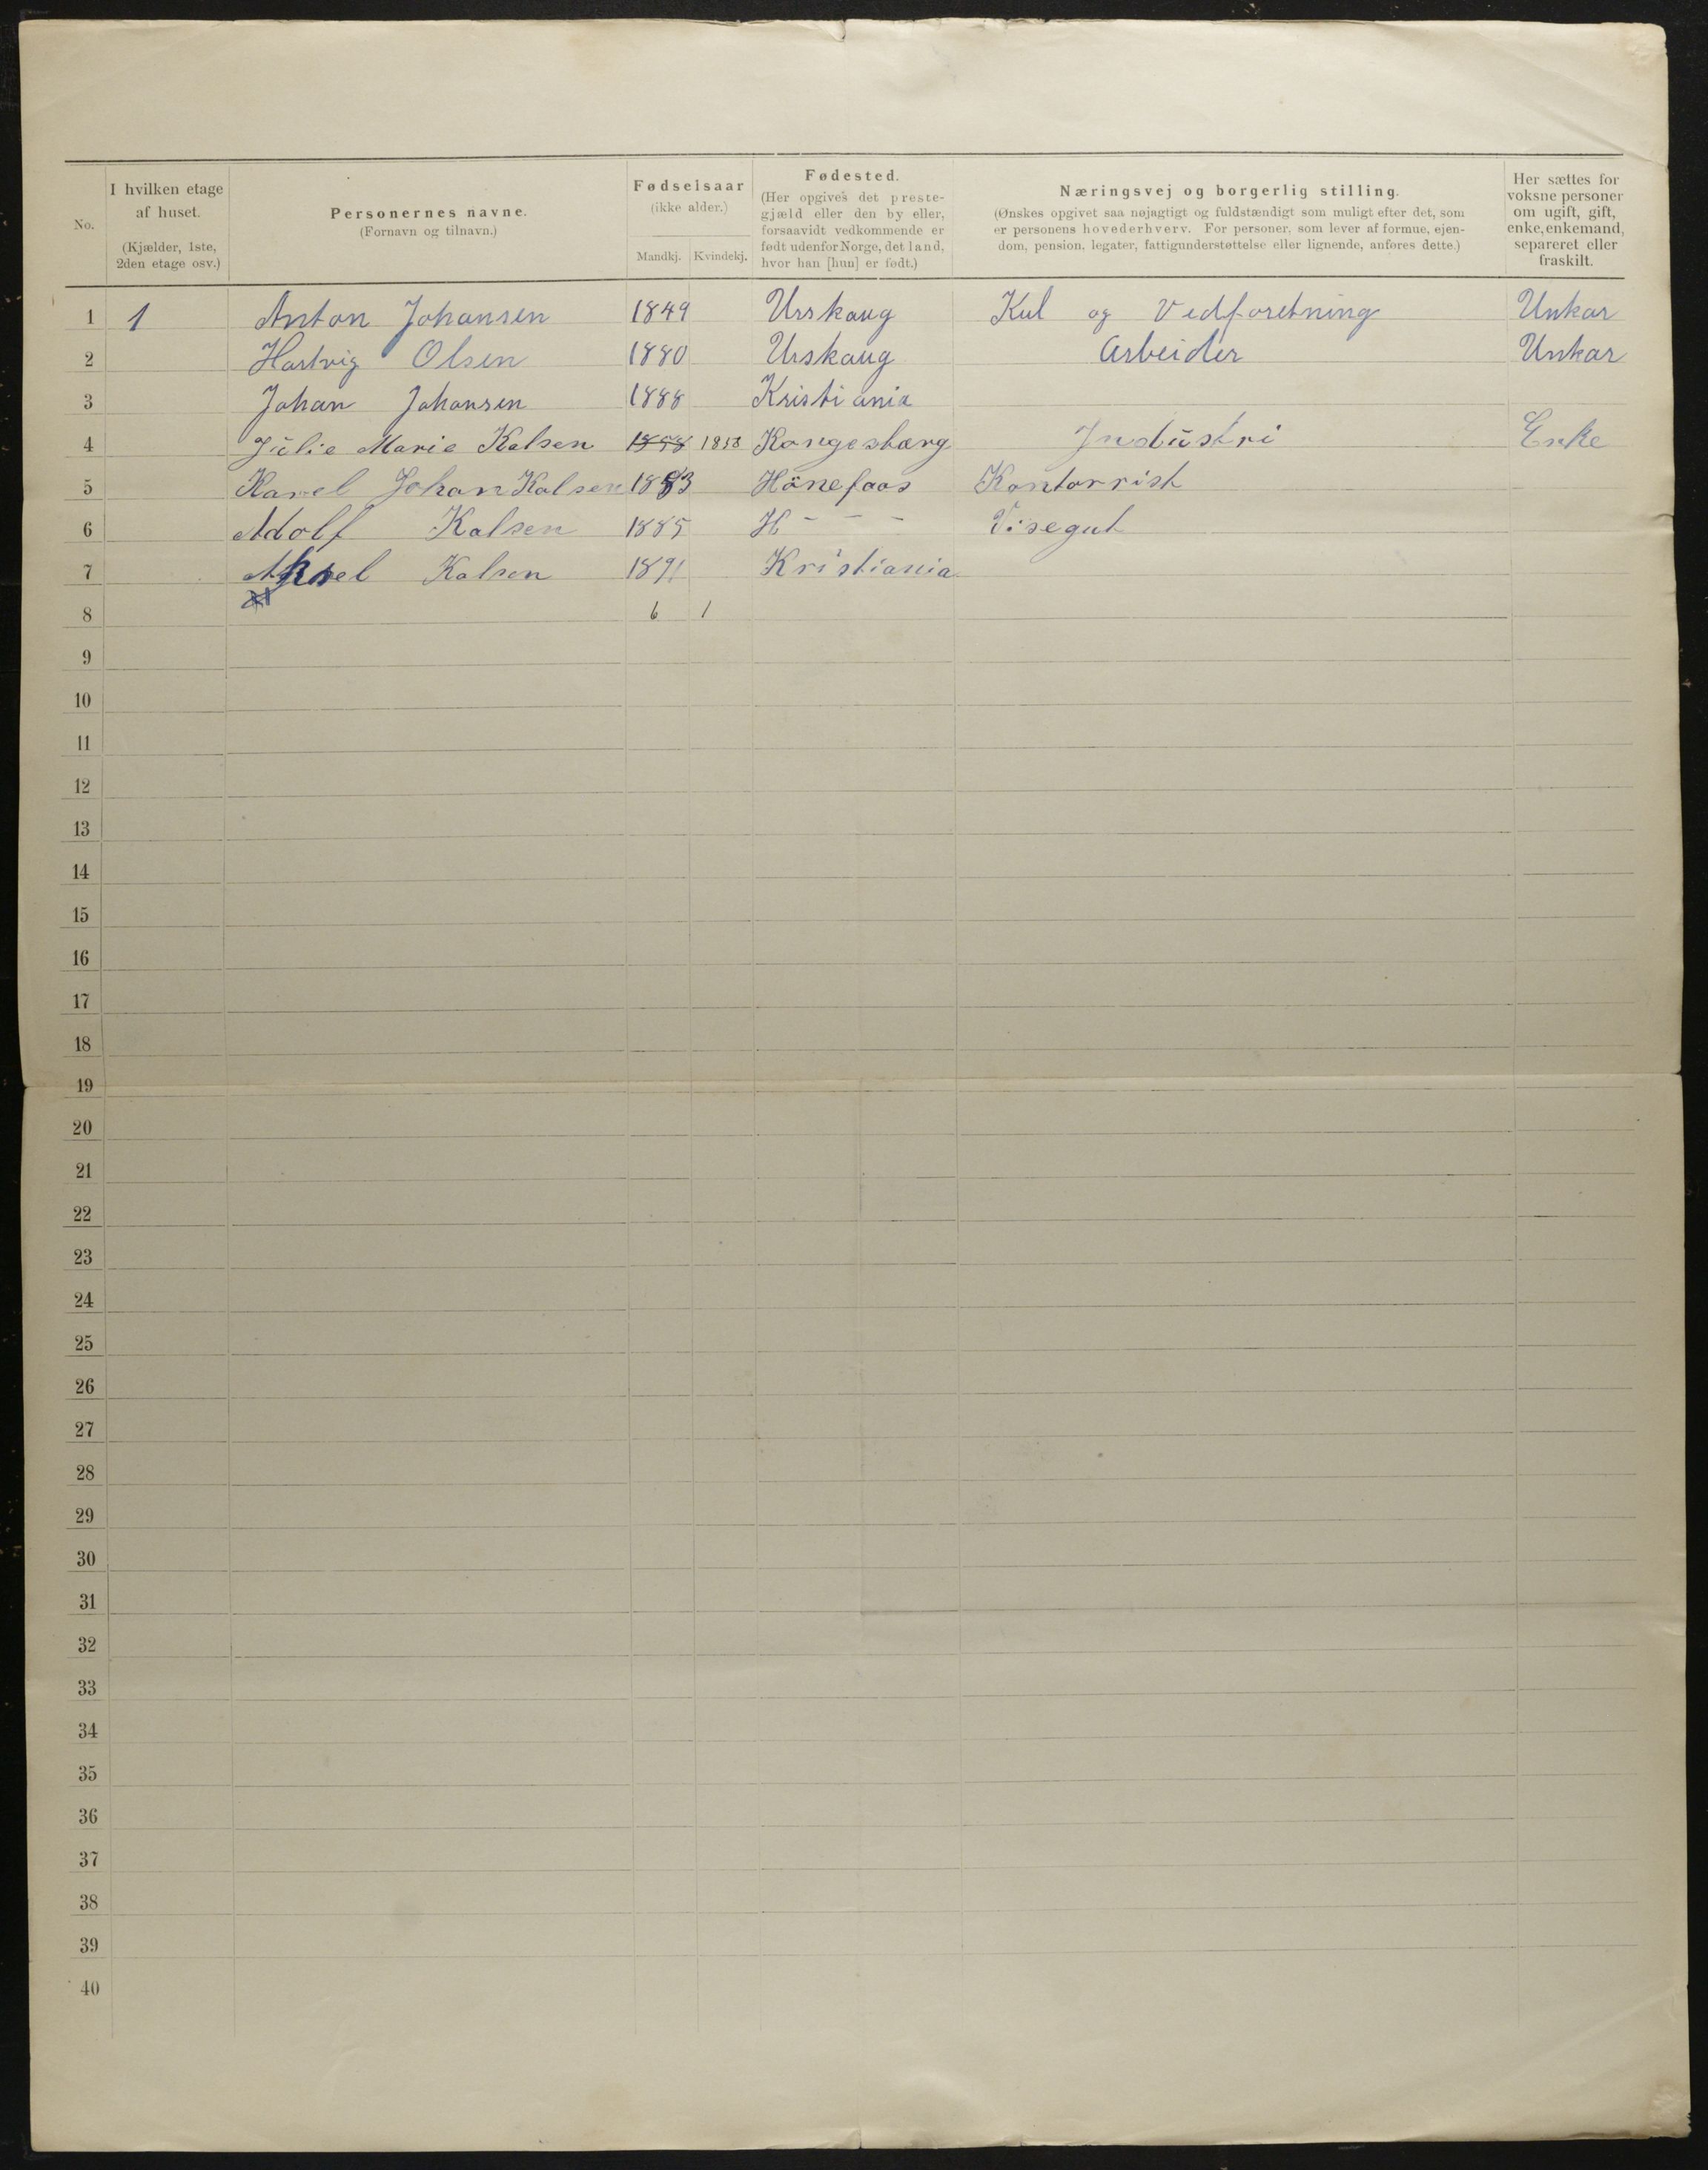 No.
I hvilken etage af huset.
(Kjælder, 1ste, 2den etage osv.)
Personernes navne.
(Fornavn og tilnavn.)
Fødselsaar
(ikke alder.)
Mandkj. Kvindekj.
Fødested.
(Her opgives det preste-
gjæld eller den by eller,
forsaavidt vedkommende er
født udenfor Norge, det land,
hvor han [hun] er født.)
Næringsvej og borgerlig stilling.
(Ønskes opgivet saa nøjagtigt og fuldstændigt som muligt efter det, som
er personens hovederhverv. For personer, som lever af formue, ejen-
dom, pension, legater, fattigunderstøttelse eller lignende, anføres dette.)
Her sættes for
voksne personer
om ugift, gift,
enke, enkemand,
separeret eller
fraskilt.
1 1 Anton Johansen 1849 Urskoug Kul og Vedforetning Unkar
2 Hartvig Olsen 1880 Urskaug Arbeider Unkar
3 Johan Johansen 1888 Kristiania
4 Julie Marie Kalsen 1858 1858 Kongesbærg Industri Enke
5 Karel Johan Kalsen 1883 Hönefaas Kontorrist
6 Adolf Kalsen 1885 H - - - Visegut
7 Kalsen 1891 Kristiania
8 6 1
9
10
11
12
13
14
15
16
17
18
19
20
21
22
23
24
25
26
27
28
29
30
31
32
33
34
35
36
37
38
39
40